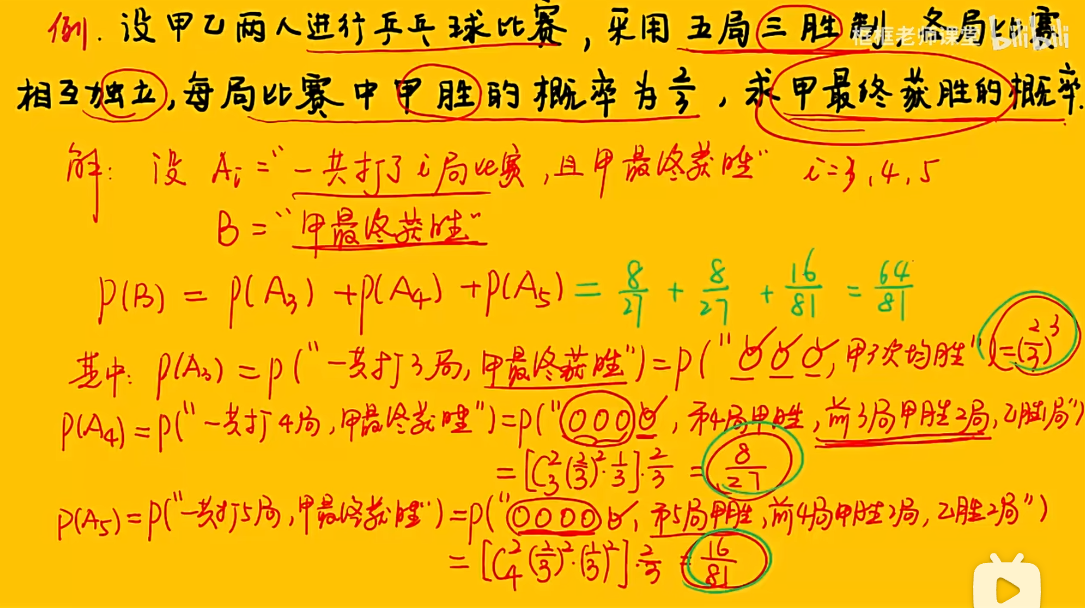 例. 设甲乙两人进行乒乓球比赛,采用五局三胜制,各局比赛
框框老师课堂 bilibili
相互独立,每局比赛中甲胜的概率为2/3,求甲最终获胜的概率.
解: 设 Ai="一共打了i局比赛,且甲最终获胜" i=3,4,5
B="甲最终获胜"
P(B)=P(A₃)+P(A₄)+P(A₅)=8/27+8/27+16/81=64/81
其中: P(A₃)=P("一共打3局,甲最终获胜")=P("000,甲3次均胜")=(2/3)³
P(A₄)=P("一共打4局,甲最终获胜")=P("0000,第4局甲胜,前3局甲胜2局,乙胜1局")
=[C₃²(2/3)²·1/3]·2/3=8/27
P(A₅)=P("一共打5局,甲最终获胜")=P("00000,第5局甲胜,前4局甲胜2局,乙胜2局")
=[C₄²(2/3)²·(1/3)²]·2/3=16/81